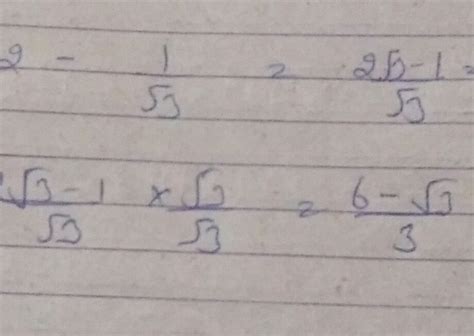 2 - 1/√3 = 2√3-1/√3 =
√3-1/√3 × √3/√3 = 6-√3/3